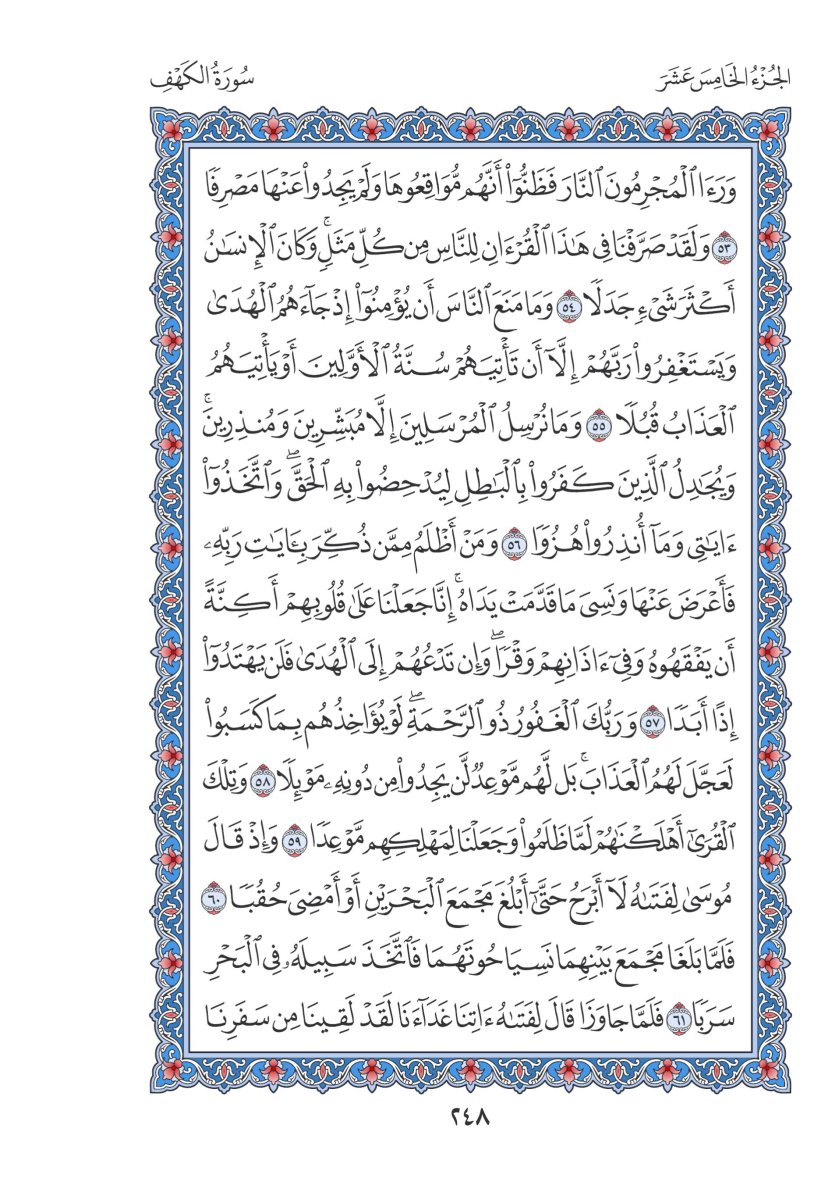 الجُزْءُ الخَامِسَ عَشَرَ
سُورَةُ الكَهْفِ
وَرَءَا ٱلْمُجْرِمُونَ ٱلنَّارَ فَظَنُّوٓا۟ أَنَّهُم مُّوَاقِعُوهَا وَلَمْ يَجِدُوا۟ عَنْهَا مَصْرِفًا
٥٣ وَلَقَدْ صَرَّفْنَا فِى هَٰذَا ٱلْقُرْءَانِ لِلنَّاسِ مِن كُلِّ مَثَلٍۚ وَكَانَ ٱلْإِنسَٰنُ
أَكْثَرَ شَىْءٍ جَدَلًا ٥٤ وَمَا مَنَعَ ٱلنَّاسَ أَن يُؤْمِنُوٓا۟ إِذْ جَآءَهُمُ ٱلْهُدَىٰ
وَيَسْتَغْفِرُوا۟ رَبَّهُمْ إِلَّآ أَن تَأْتِيَهُمْ سُنَّةُ ٱلْأَوَّلِينَ أَوْ يَأْتِيَهُمُ
ٱلْعَذَابُ قُبُلًا ٥٥ وَمَا نُرْسِلُ ٱلْمُرْسَلِينَ إِلَّا مُبَشِّرِينَ وَمُنذِرِينَۚ
وَيُجَٰدِلُ ٱلَّذِينَ كَفَرُوا۟ بِٱلْبَٰطِلِ لِيُدْحِضُوا۟ بِهِ ٱلْحَقَّۖ وَٱتَّخَذُوٓا۟
ءَايَٰتِى وَمَآ أُنذِرُوا۟ هُزُوًا ٥٦ وَمَنْ أَظْلَمُ مِمَّن ذُكِّرَ بِـَٔايَٰتِ رَبِّهِۦ
فَأَعْرَضَ عَنْهَا وَنَسِىَ مَا قَدَّمَتْ يَدَاهُۚ إِنَّا جَعَلْنَا عَلَىٰ قُلُوبِهِمْ أَكِنَّةً
أَن يَفْقَهُوهُ وَفِىٓ ءَاذَانِهِمْ وَقْرًاۖ وَإِن تَدْعُهُمْ إِلَى ٱلْهُدَىٰ فَلَن يَهْتَدُوٓا۟
إِذًا أَبَدًا ٥٧ وَرَبُّكَ ٱلْغَفُورُ ذُو ٱلرَّحْمَةِۖ لَوْ يُؤَاخِذُهُم بِمَا كَسَبُوا۟
لَعَجَّلَ لَهُمُ ٱلْعَذَابَۚ بَل لَّهُم مَّوْعِدٌ لَّن يَجِدُوا۟ مِن دُونِهِۦ مَوْئِلًا ٥٨ وَتِلْكَ
ٱلْقُرَىٰٓ أَهْلَكْنَٰهُمْ لَمَّا ظَلَمُوا۟ وَجَعَلْنَا لِمَهْلِكِهِم مَّوْعِدًا ٥٩ وَإِذْ قَالَ
مُوسَىٰ لِفَتَىٰهُ لَآ أَبْرَحُ حَتَّىٰٓ أَبْلُغَ مَجْمَعَ ٱلْبَحْرَيْنِ أَوْ أَمْضِىَ حُقُبًا ٦٠
فَلَمَّا بَلَغَا مَجْمَعَ بَيْنِهِمَا نَسِيَا حُوتَهُمَا فَٱتَّخَذَ سَبِيلَهُۥ فِى ٱلْبَحْرِ
سَرَبًا ٦١ فَلَمَّا جَاوَزَا قَالَ لِفَتَىٰهُ ءَاتِنَا غَدَآءَنَا لَقَدْ لَقِينَا مِن سَفَرِنَا
٢٤٨